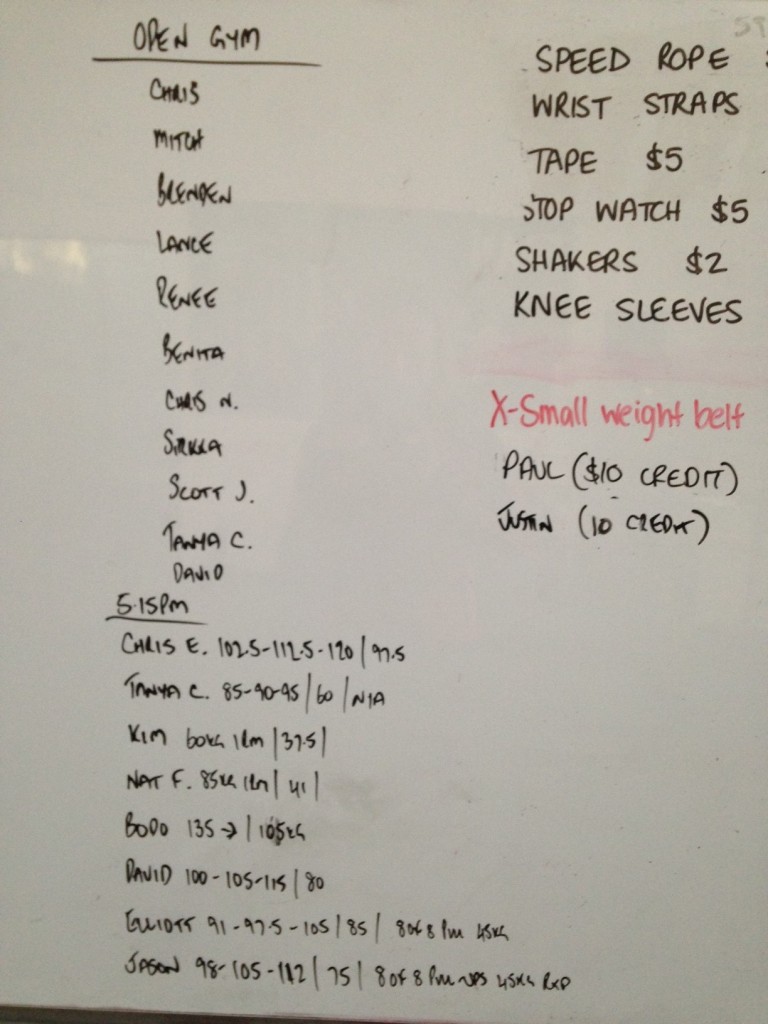 OPEN GYM
CHRIS
MITCH
BRENDEN
LANCE
RENEE
BENITA
CHRIS N.
SIRKKA
SCOTT J.
TANYA C.
DAVID
5.15PM
CHRIS E. 102.5-112.5-120 | 97.5
TANYA C. 85-90-95 | 60 | N/A
KIM 60KG 1RM | 37.5 |
NAT F. 85KG 1RM | 41 |
BODO 135 → | 105KG
DAVID 100-105-115 | 80
ELLIOTT 91-97.5-105 | 85 | 8 of 8 45KG
JASON 98-105-112 | 75 | 8 OF 8 45KG RXD
SPEED ROPE
WRIST STRAPS
TAPE $5
STOP WATCH $5
SHAKERS $2
KNEE SLEEVES
X-Small weight belt
PAUL ($10 CREDIT)
JUSTIN (10 CREDIT)